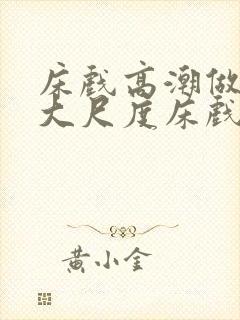 床戏高潮做
大尺度床戏
黄小金